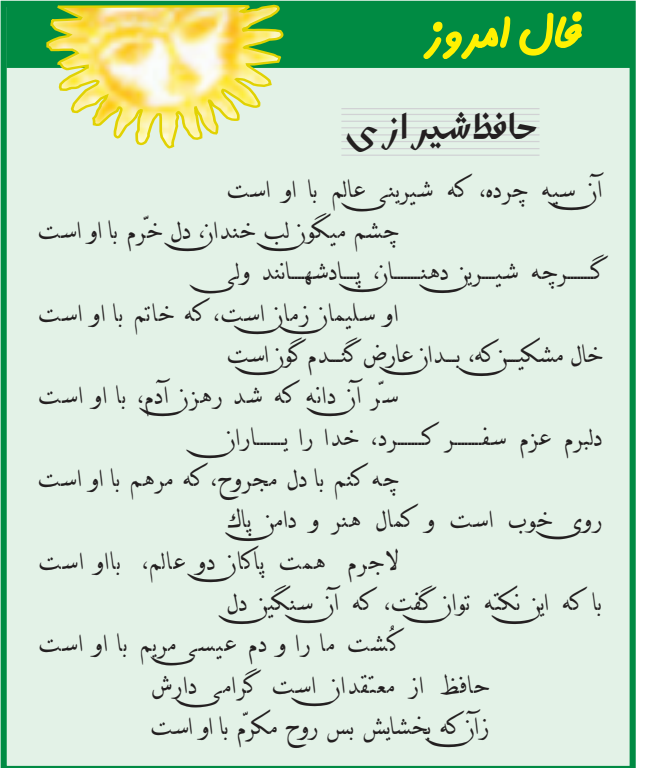 فال امروز
حافظ شیرازی
آن سیه چرده، که شیرینی عالم با او است
چشم میگون لب خندان، دل خرّم با او است
گرچه شیرین دهنان، پادشهانند ولی
او سلیمان زمان است، که خاتم با او است
خال مشکین که، بدان عارض گندم گون است
سرّ آن دانه که شد رهزن آدم، با او است
دلبرم عزم سفر کرد، خدا را یاران
چه کنم با دل مجروح، که مرهم با او است
روی خوب است و کمال هنر و دامن پاك
لاجرم همت پاکان دو عالم، بااو است
با که این نکته توان گفت، که آن سنگین دل
کُشت ما را و دم عیسی مریم با او است
حافظ از معتقدان است گرامی دارش
زآن که بخشایش بس روح مکرّم با او است